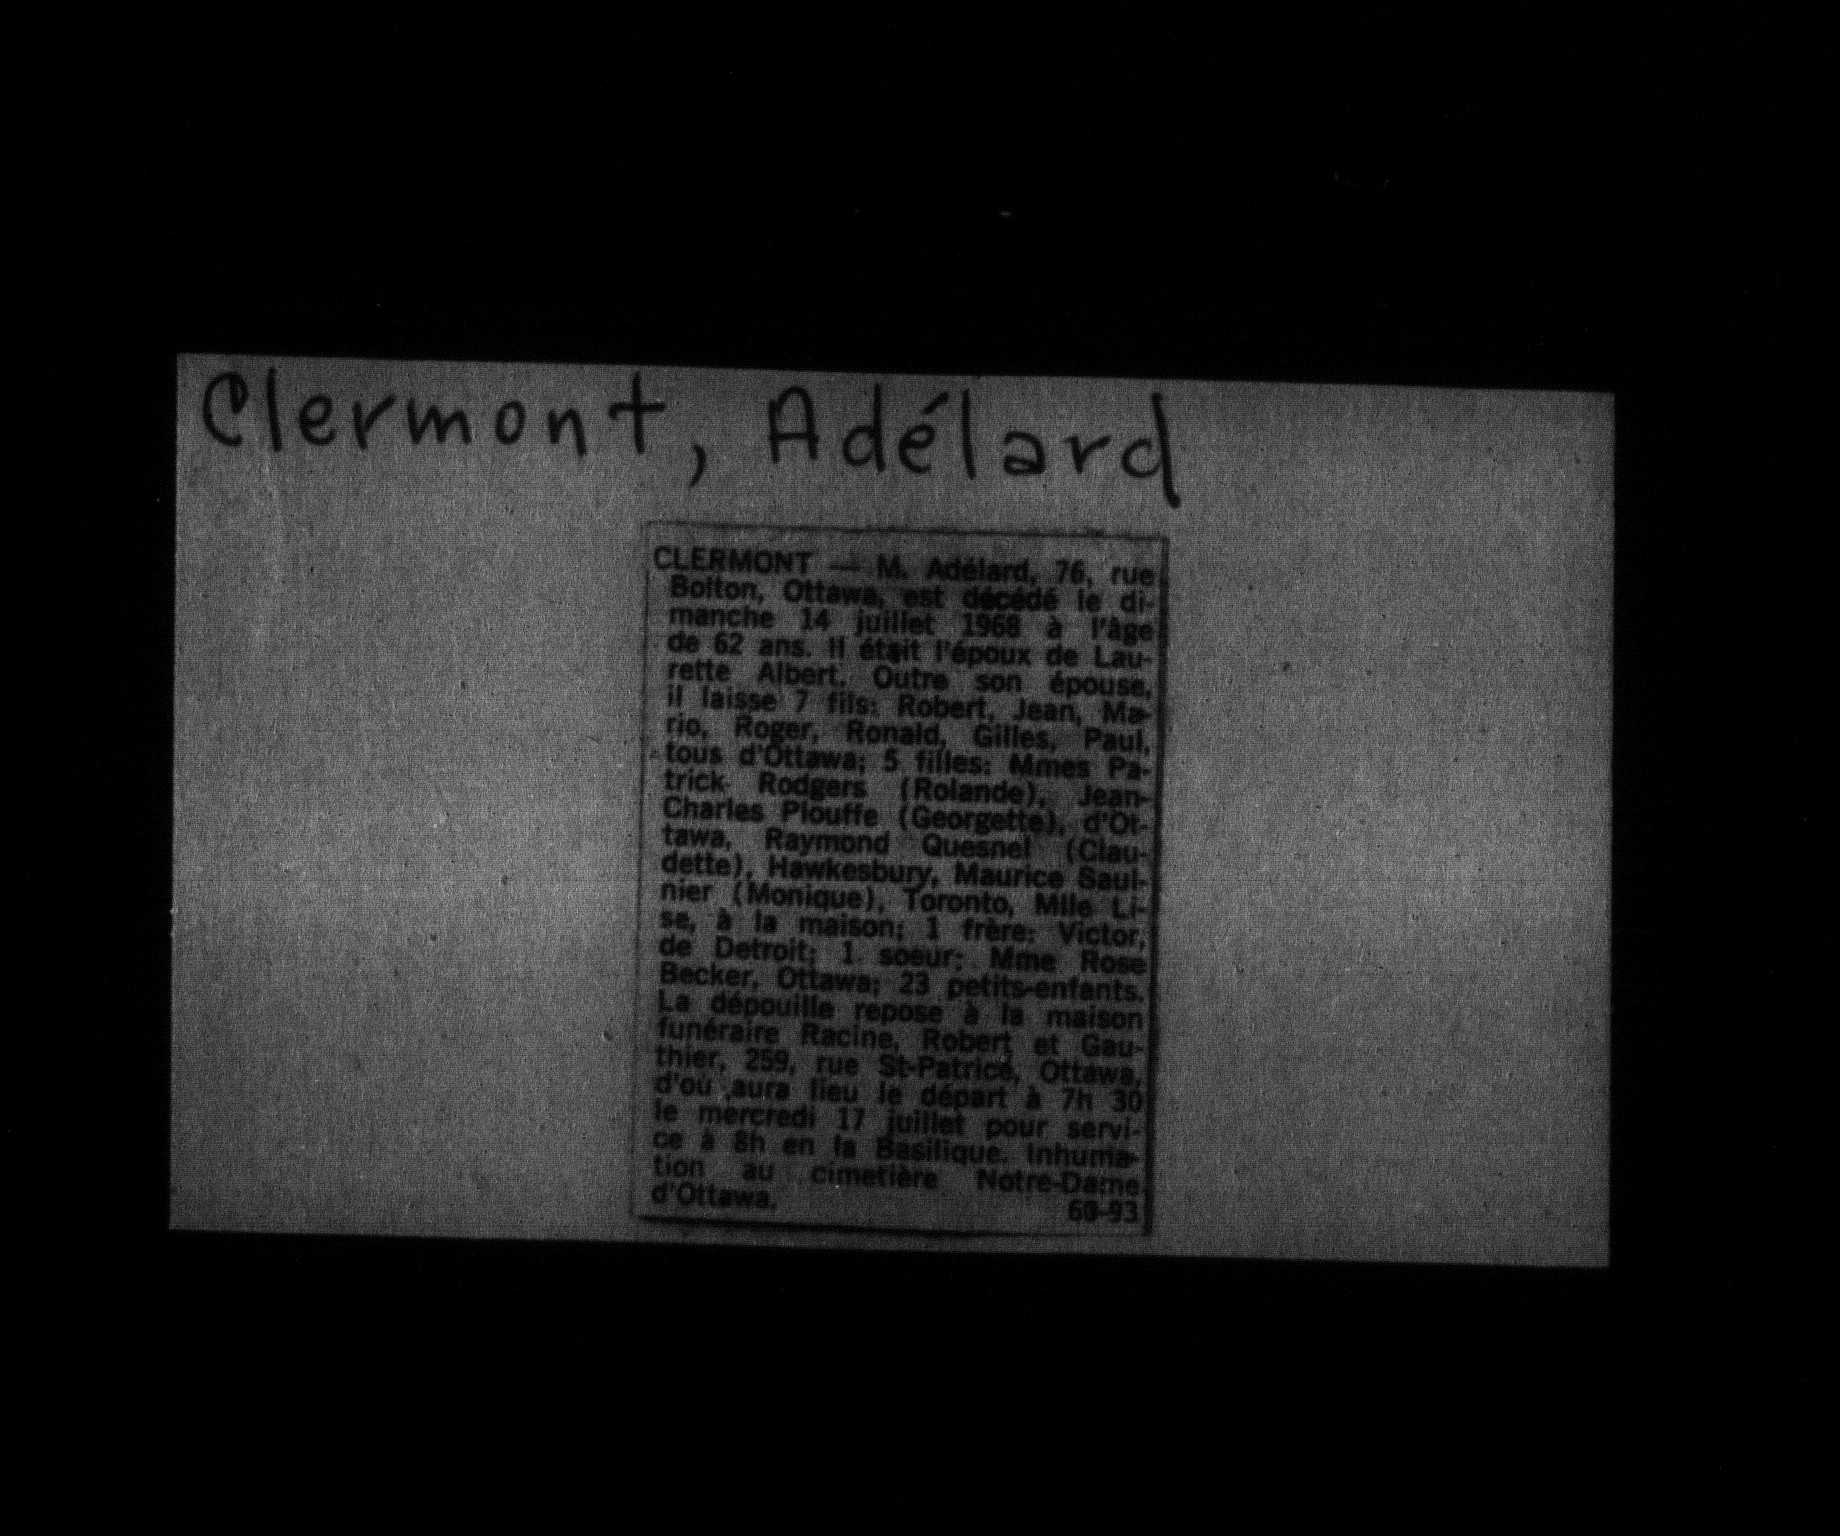 Clermont, Adélard
CLERMONT — M. Adélard, 76, rue
Bolton, Ottawa, est décédé le di-
manche 14 juillet 1968 à l'âge
de 62 ans. Il était l'époux de Lau-
rette Albert. Outre son épouse,
il laisse 7 fils: Robert, Jean, Ma-
rio, Roger, Ronald, Gilles, Paul,
tous d'Ottawa; 5 filles: Mmes Pa-
trick Rodgers (Rolande), Jean-
Charles Plouffe (Georgette), d'Ot-
tawa, Raymond Quesnel (Clau-
dette), Hawkesbury, Maurice Saul-
nier (Monique), Toronto, Mlle Li-
se, à la maison; 1 frère: Victor,
de Detroit; 1 soeur: Mme Rose
Becker, Ottawa; 23 petits-enfants.
La dépouille repose à la maison
funéraire Racine, Robert et Gau-
thier, 259, rue St-Patrice, Ottawa,
d'où aura lieu le départ à 7h 30
le mercredi 17 juillet pour servi-
ce à 8h en la Basilique. Inhuma-
tion au cimetière Notre-Dame
d'Ottawa.